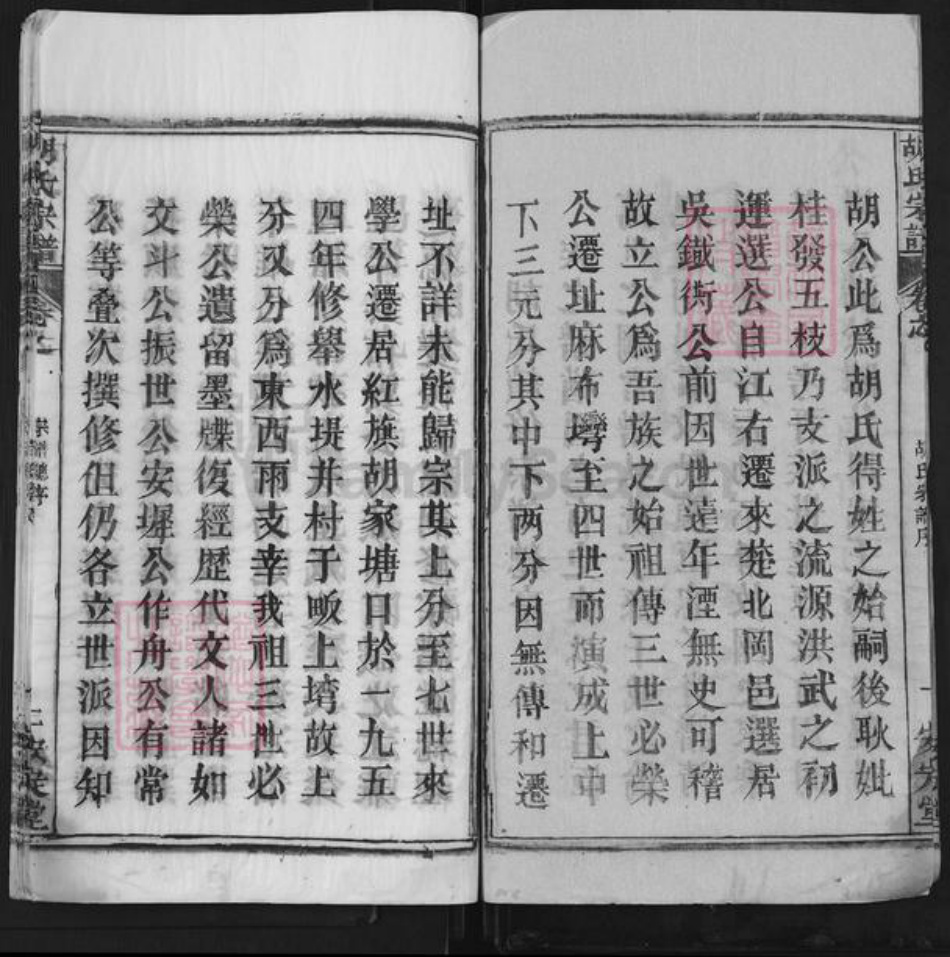 胡公此爲胡氏得姓之始嗣後耿妣
桂發五枝乃支派之流源洪武之初
運選公自江右遷來楚北岡邑選居
吳鐵街公前因世遠年湮無史可稽
故立公爲吾族之始祖傳三世必榮
公遷址麻布塆至四世而演成上中
下三元分其中下两分因無傳和遷
址不詳未能歸宗其上分至七世來
學公遷居紅旗胡家塘口於一九五
四年修舉水堤并村子畈上塆故上
分又分爲東西兩支幸我祖三世必
榮公遺留墨牒復經歷代文人諸如
文斗公振世公安墀公作舟公有常
公等叠次撰修但仍各立世派因知
胡氏宗譜
胡氏宗譜
FamilySearch